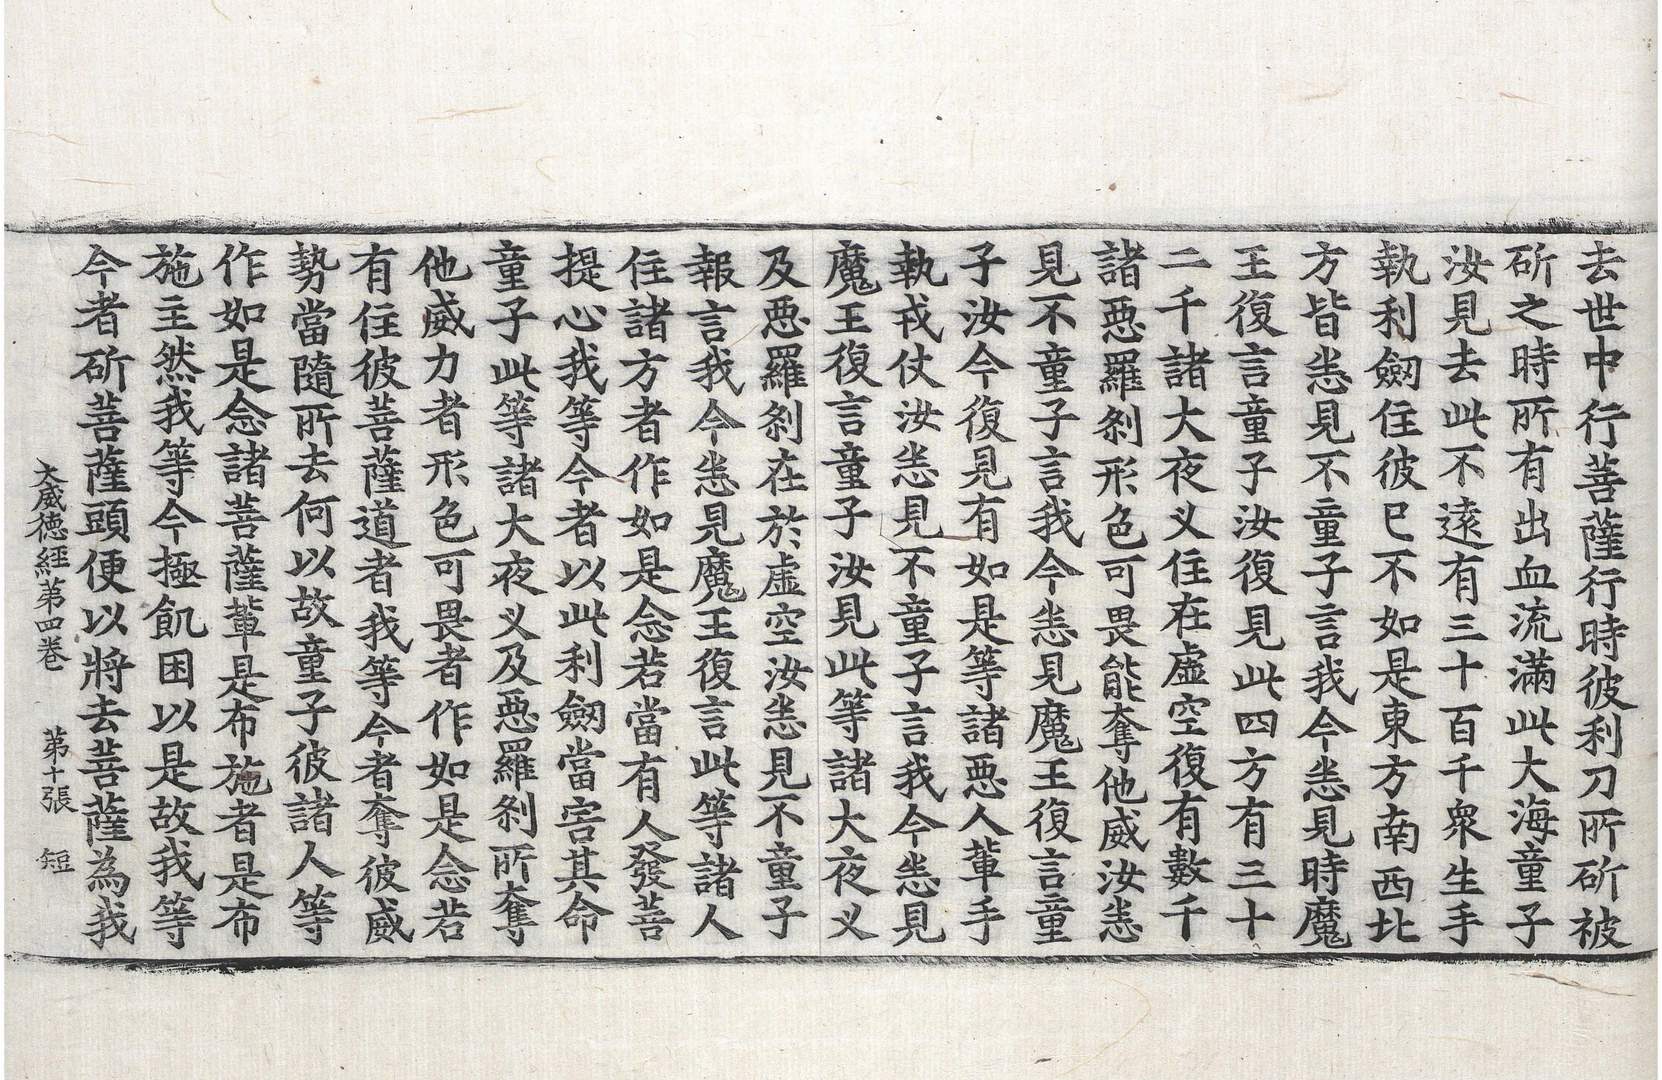 去世中行菩薩行時彼利刀所斫被
斫之時所有出血流滿此大海童子
汝見去此不遠有三十百千衆生手
執利劒住彼已不如是東方南西北
方皆悉見不童子言我今悉見時魔
王復言童子汝復見此四方有三十
二千諸大夜叉住在虛空復有數千
諸惡羅刹形色可畏能奪他威汝悉
見不童子言我今悉見魔王復言童
子汝今復見有如是等諸惡人輩手
執戎仗汝悉見不童子言我今悉見
魔王復言童子汝見此等諸大夜叉
及惡羅刹在於虛空汝悉見不童子
報言我今悉見魔王復言此等諸人
住諸方者作如是念若當有人發菩
提心我等今者以此利劒當害其命
童子此等諸大夜叉及惡羅刹所奪
他威力者形色可畏者作如是念若
有住彼菩薩道者我等今者奪彼威
勢當隨所去何以故童子彼諸人等
作如是念諸菩薩輩是布施者是布
施主然我等今極飢困以是故我等
今者斫菩薩頭便以將去菩薩為我
大威德經第四卷 第十張 短